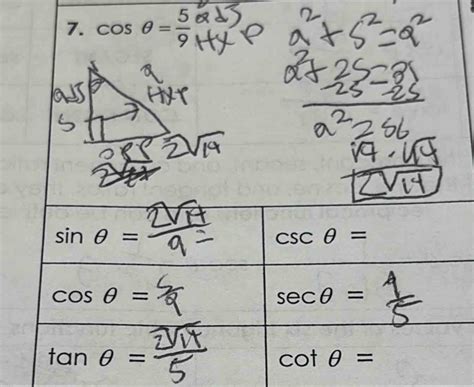 7. cos θ = 5/9 adj HYP
a² + 5² = 9²
a² + 25 = 81
-25 -25
a² = 56
√4 · √14
2√14
adj 5
9 HYP
OPP 2√14
sin θ = 2√14/9 =
csc θ =
cos θ = 5/9
sec θ = 9/5
tan θ = 2√14/5
cot θ =